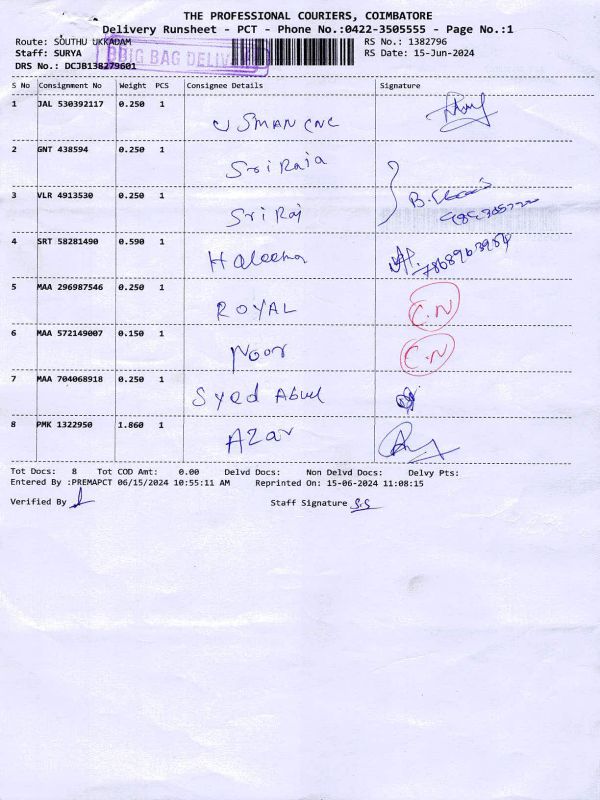 THE PROFESSIONAL COURIERS, COIMBATORE
Delivery Runsheet - PCT - Phone No.:0422-3505555 - Page No.:1
Route: SOUTHU UKKADAM RS No.: 1382796
Staff: SURYA BIG BAG DELIV RS Date: 15-Jun-2024
DRS No.: DCJB138279601
S No Consignment No Weight PCS Consignee Details Signature
1 JAL 530392117 0.250 1 USMAN CNC
2 GNT 438594 0.250 1 Sri Raja
3 VLR 4913530 0.250 1 Sri Raj
4 SRT 58281490 0.590 1 Haleema
5 MAA 296987546 0.250 1 ROYAL C.N
6 MAA 572149007 0.150 1 Noor C.N
7 MAA 704068918 0.250 1 Syed Abuel
8 PMK 1322950 1.860 1 AZar
Tot Docs: 8 Tot COD Amt: 0.00 Delvd Docs: Non Delvd Docs: Delvy Pts:
Entered By :PREMAPCT 06/15/2024 10:55:11 AM Reprinted On: 15-06-2024 11:08:15
Verified By Staff Signature S.S